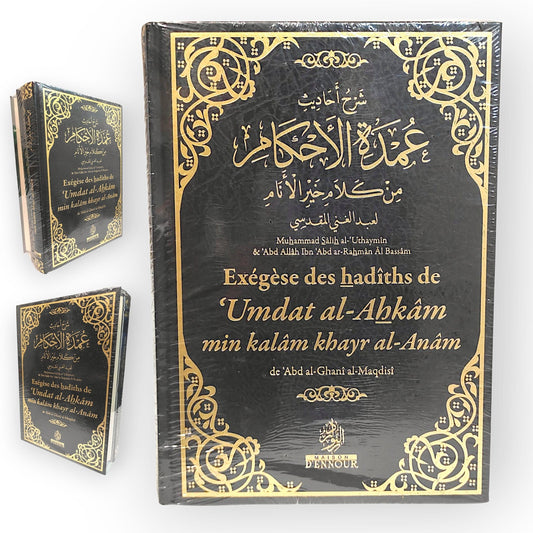 شرح أحاديث
عمدة الأحكام
من كلام خير الأنام
لعبد الغني المقدسي
Muhammad Sâlih al-'Uthaymîn
& 'Abd Allâh Ibn 'Abd ar-Rahmân Âl Bassâm
Exégèse des hadîths de
'Umdat al-Ahkâm
min kalâm khayr al-Anâm
de 'Abd al-Ghanî al-Maqdisî
MAISON
D'ENNOUR
شرح أحاديث
عمدة الأحكام
من كلام خير الأنام
Exégèse des hadîths de
'Umdat al-Ahkâm
min kalâm khayr al-Anâm
de 'Abd al-Ghanî al-Maqdisî
شرح أحاديث
عمدة الأحكام
من كلام خير الأنام
Exégèse des hadîths de
'Umdat al-Ahkâm
min kalâm khayr al-Anâm
de 'Abd al-Ghanî al-Maqdisî